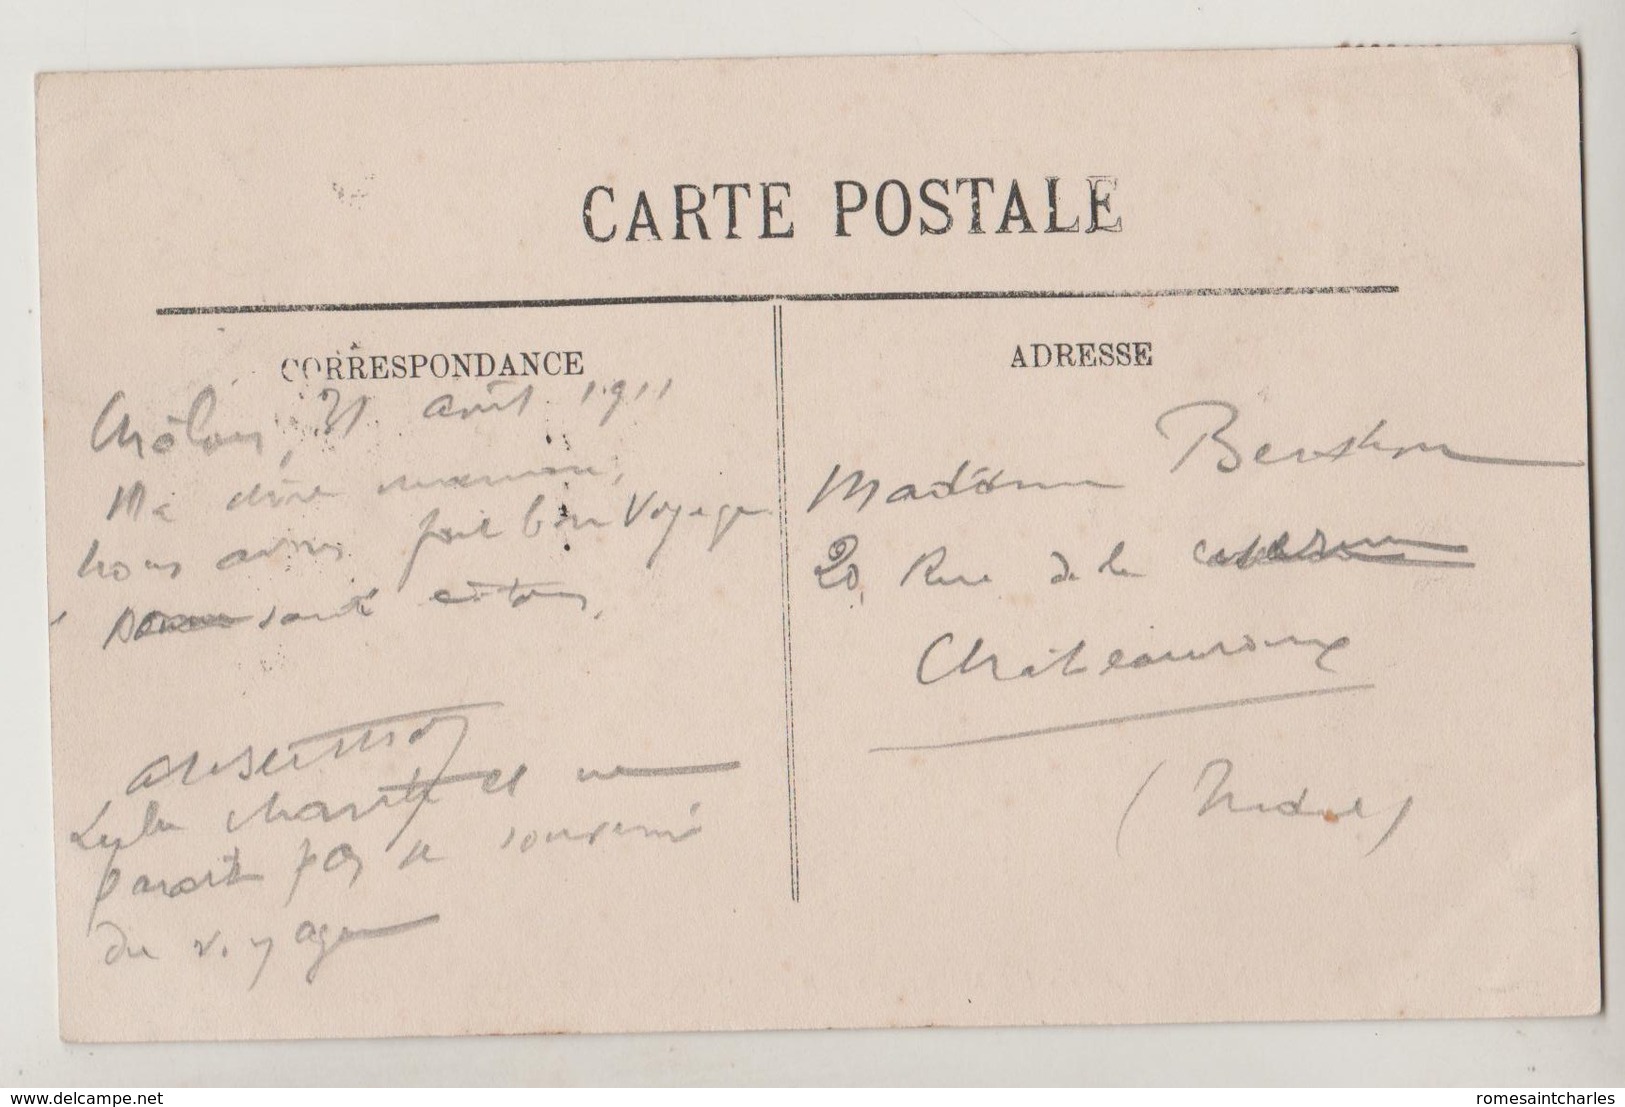 CARTE POSTALE
CORRESPONDANCE
Chôlon, 31 août 1911
Ma chère maman,
nous avons fait bon voyage
santé et tous,
Lulu chante et ne
parait pas se souvenir
du voyage
ADRESSE
Madame
20 Rue de la
Châteauroux
(Indre)
delcampe.net
romesaintcharles